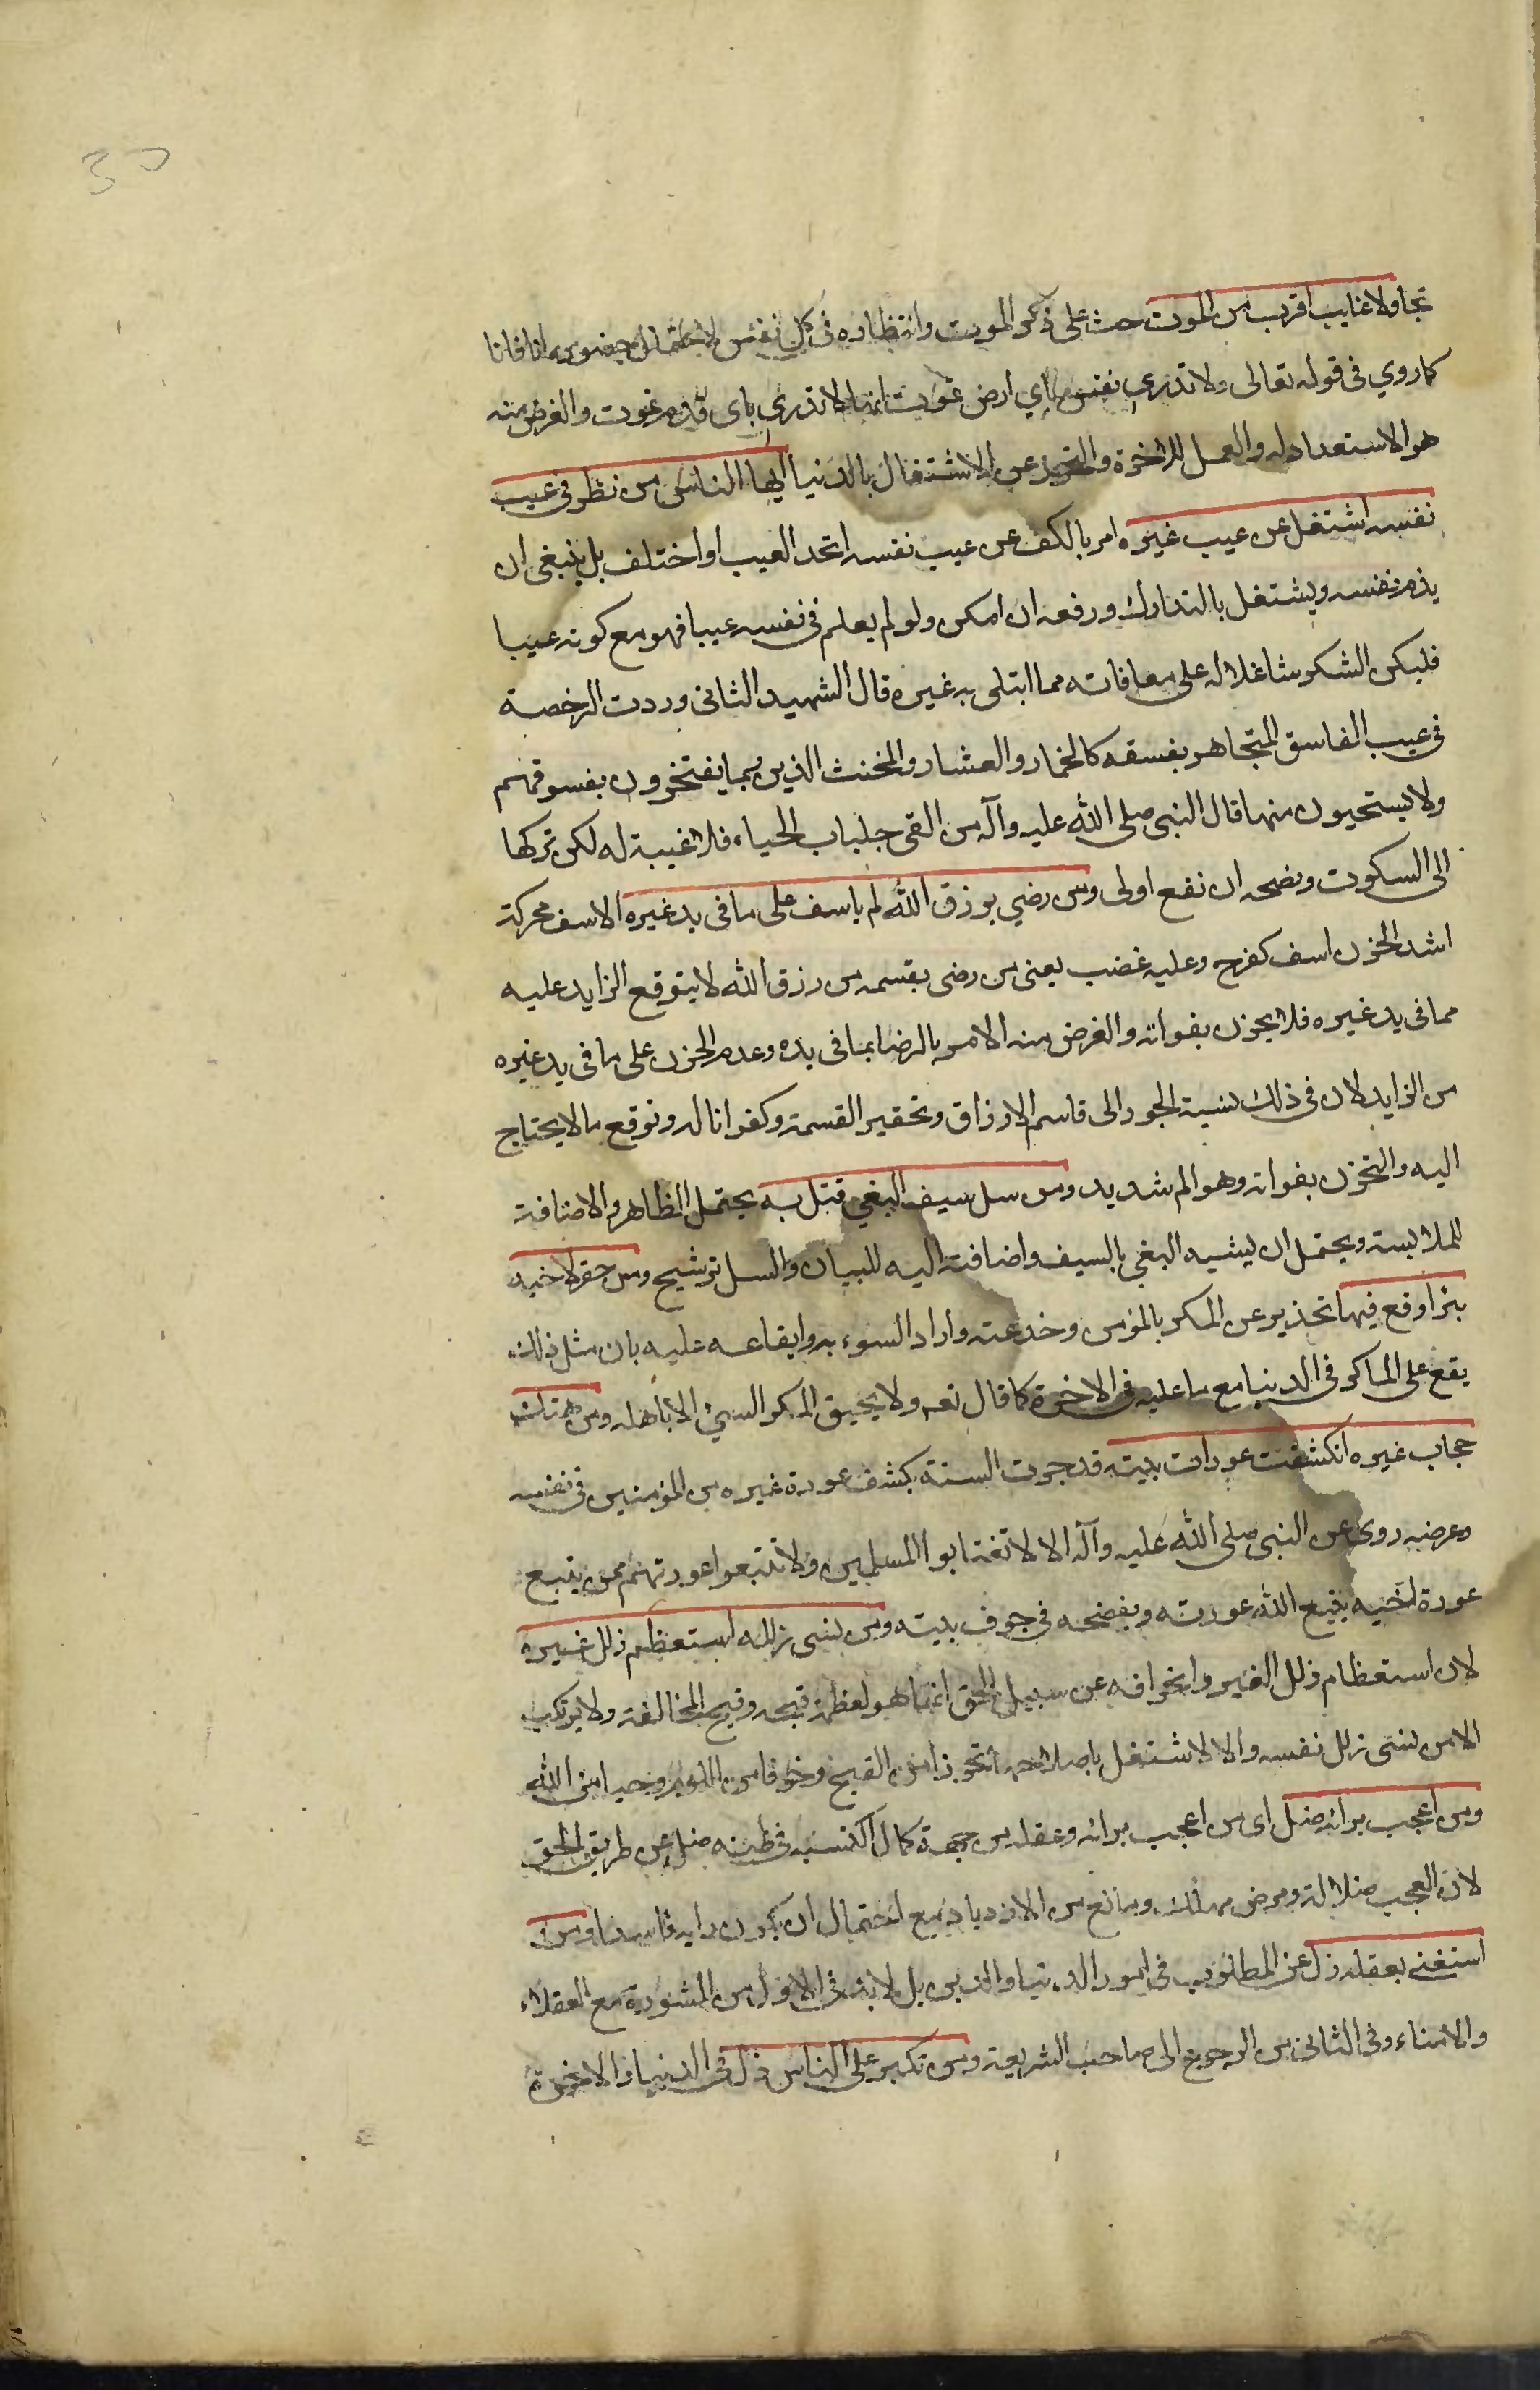 30
تجا ولا غايب اقرب من الموت حث على ذكر الموت وانتظاره فى كل نفس لاحتمال حضوره انا فانا
كما روي فى قوله تعالى ولا تدري نفس باي ارض تموت انها لا تدري باى قدم تموت والغرض منه
هو الاستعداد له والعمل للاخرة والتحرز عن الاشتغال بالدنيا ايها الناس من نظر فى عيب
نفسه اشتغل عن عيب غيره امر بالكف عن عيب نفسه اتحد العيب او اختلف بل ينبغى ان
يذم نفسه ويشتغل بالتدارك ورفعه ان امكن ولو لم يعلم فى نفسه عيبا فهو مع كونه عيبا
فليكن الشكر شاغلا له على معافاته مما ابتلى به غيره قال الشهيد الثانى وردت الرخصة
فى عيب الفاسق المتجاهر بفسقه كالخمار والعشار والمخنث الذين ربما يفتخرون بفسوقهم
ولا يستحيون منها قال النبى صلى الله عليه وآله من القى جلباب الحياء فلا غيبة له لكن تركها
الى السكوت ونصحه ان نفع اولى ومن رضي برزق الله لم ياسف على ما فى يد غيره الاسف محركة
اشد الحزن اسف كفرح وعليه غضب يعنى من رضى بقسمه من رزق الله لا يتوقع الزايد عليه
مما فى يد غيره فلا يحزن بفواته والغرض منه الامر بالرضا بما فى يده وعدم الحزن على ما فى يد غيره
من الزايد لان فى ذلك نسبة الجور الى قاسم الارزاق وتحقير القسمة وكفرانا له وتوقع ما لا يحتاج
اليه والتحزن بفواته وهو الم شديد ومن سل سيف البغي قتل به يحتمل الظاهر والاضافة
للملابسة ويحتمل ان يشبه البغي بالسيف واضافته اليه للبيان والسل ترشيح ومن حفر لاخيه
بئرا وقع فيها تحذير عن المكر بالمؤمن وخدعته واراد السوء به وايقاعه عليه بان مثل ذلك
يقع على الماكر فى الدنيا مع ما عليه فى الاخرة كما قال تعـ ولا يحيق المكر السيئ الا باهله ومن هتك
حجاب غيره انكشفت عورات بيته قد جرت السنة بكشف عورة غيره من المؤمنين فى نفسه
وعرضه روى عن النبى صلى الله عليه وآله الا لا تغتابوا المسلمين ولا تتبعوا عورتهم فمن يتبع
عورة اخيه يتبع الله عورته ويفضحه فى جوف بيته ومن نسى زلله استعظم زلل غيره
لان استعظام زلل الغير وانحرافه عن سبيل الحق انما هو لعظمة قبحه وقبح المخالفة ولا يرتكب
الا من نسى زلل نفسه والا لاشتغل باصلاحه تحرزا من القبح وخوفا من اللوم وحياء من الله
ومن اعجب برايه ضل اى من اعجب برايه وعقله من جهة كمال اكتسبه فى ظنه ضل عن طريق الحق
لان العجب ضلالة ومرض مهلك ومانع من الازدياد مع احتمال ان يكون رايه فاسدا ومن
استغنى بعقله زل عن المطلوب فى امور الدنيا والدين بل لا بد فى الاول من المشورة مع العقلاء
والامناء وفى الثانى من الرجوع الى صاحب الشريعة ومن تكبر على الناس ذل فى الدنيا والاخرة